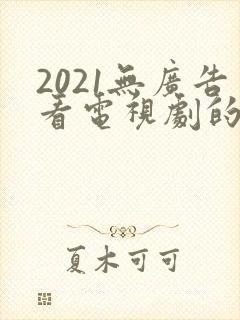 2021無廣告
看電視劇的
夏木可可